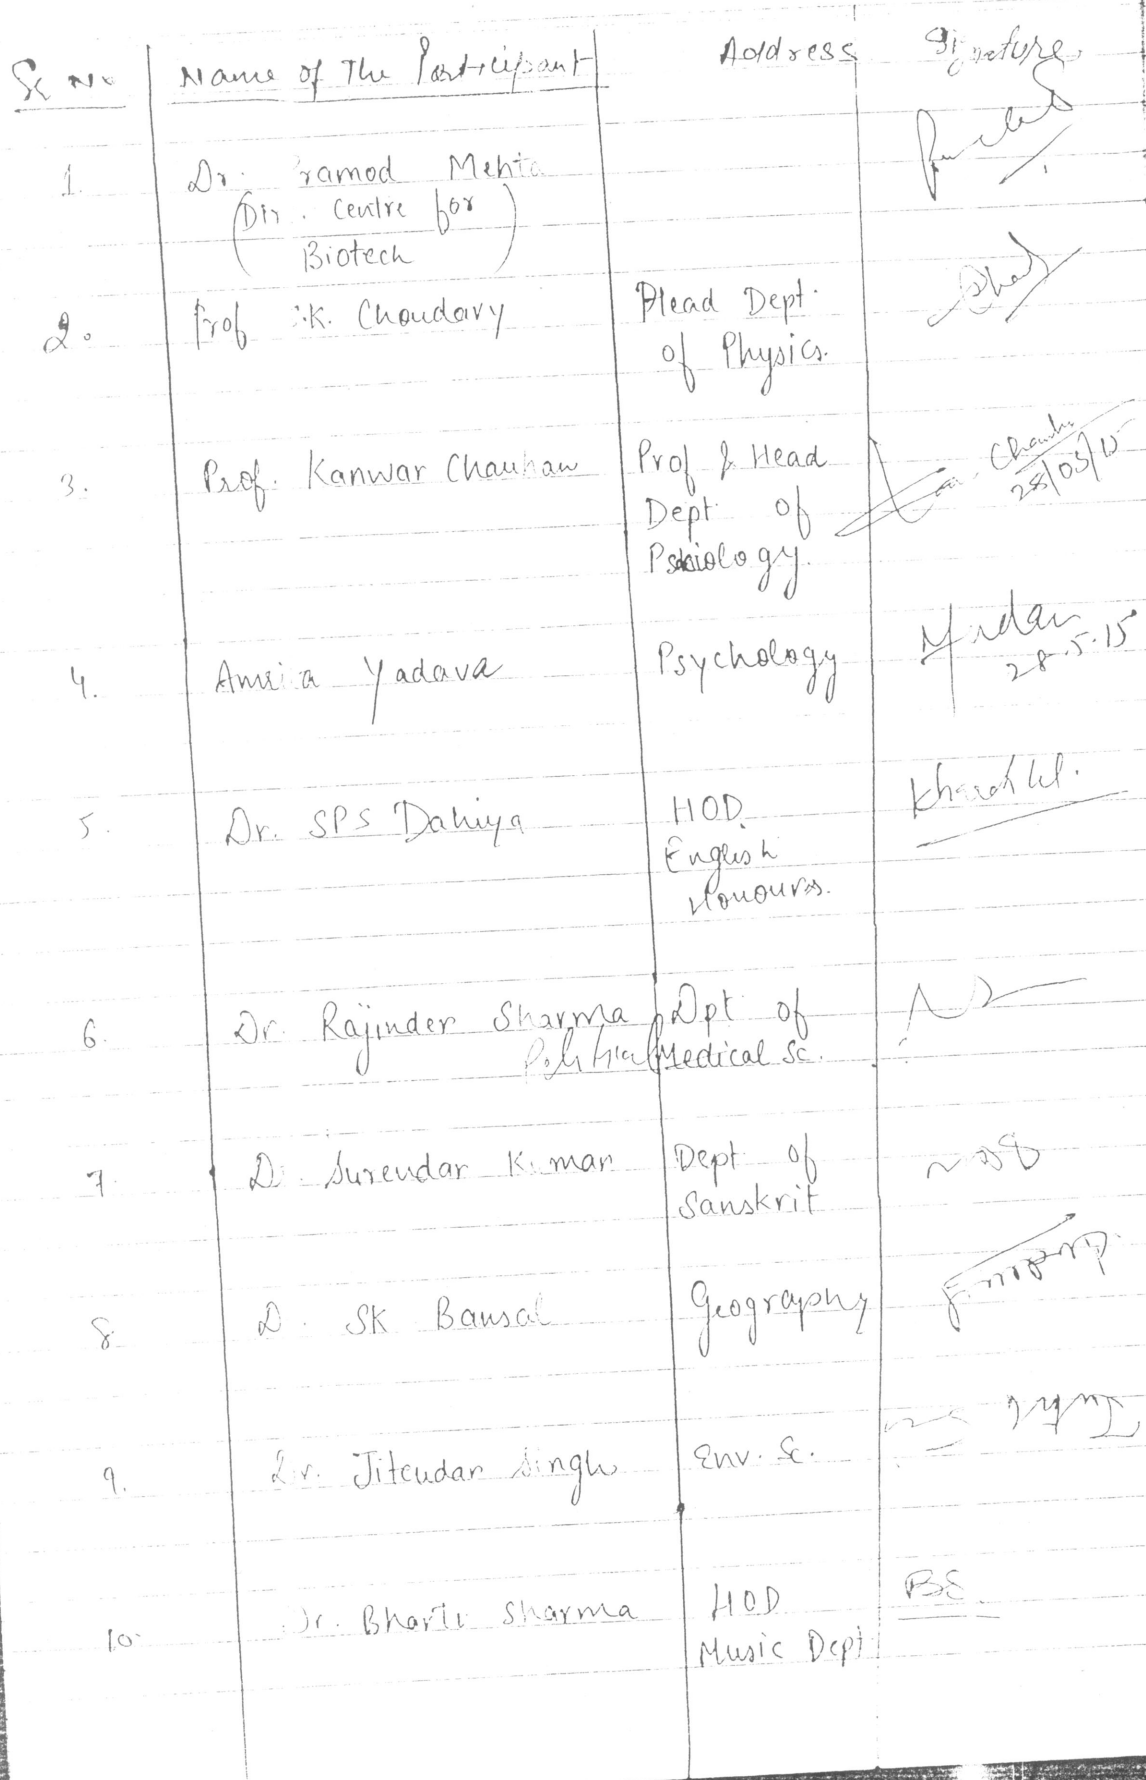 Sr No Name of The Participant Address Signature
1. Dr. ramod Mehta
(Dir. Centre for
Biotech)
2. Prof K. Choudary Head Dept.
of Physics.
3. Prof. Kanwar Chauhan Prof & Head
28/05/15
Dept. of
4. Yadava Psychology
28.5.15
5. Dr. SPS Dahiya HOD
English
Honours.
6. Dr. Rajinder Sharma Dpt of
Political Medical Sc.
7. D Surendar K mar Dept of
Sanskrit
8. D. SK Bansal Geography
9. Dr. Jitendar Singh Env. Sc.
10. Dr. Bharti Sharma HOD BS
Music Dept